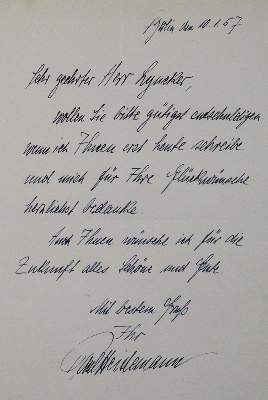 Berlin den 10.1.57
Sehr geehrter Herr
wollen Sie bitte gütigst entschuldigen
wenn ich Ihnen erst heute schreibe
und mich für Ihre Glückwünsche
herzlichst bedanke.
Auch Ihnen wünsche ich für die
Zukunft alles Schöne und Gute
Mit bestem Gruß
Ihr
Paul Heidemann